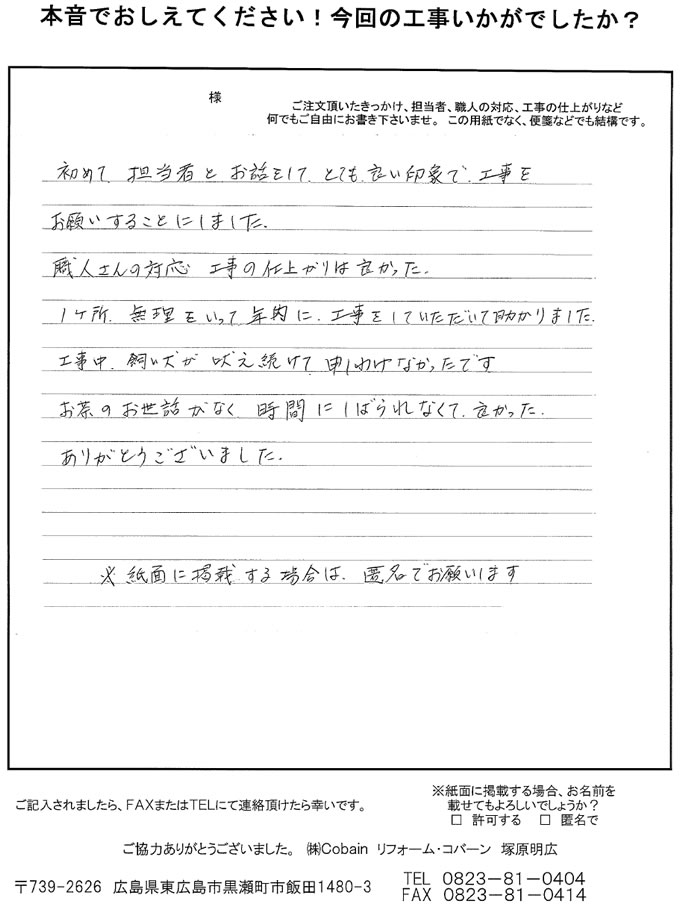 本音でおしえてください！今回の工事いかがでしたか？
様
ご注文頂いたきっかけ、担当者、職人の対応、工事の仕上がりなど
何でもご自由にお書き下さいませ。この用紙でなく、便箋などでも結構です。
初めて、担当者とお話をして、とても良い印象で、工事を
お願いすることにしました。
職人さんの対応 工事の仕上がりは良かった。
1ヶ所、無理をいって年内に、工事をしていただいて助かりました。
工事中、飼い犬が吠え続けて、申しわけなかったです
お茶のお世話がなく、時間にしばられなくて、良かった。
ありがとうございました。
※紙面に掲載する場合は、匿名でお願いします
ご記入されましたら、FAXまたはTELにて連絡頂けたら幸いです。
※紙面に掲載する場合、お名前を
載せてもよろしいでしょうか？
□ 許可する □ 匿名で
ご協力ありがとうございました。 ㈱Cobain リフォーム・コバーン 塚原明広
〒739-2626 広島県東広島市黒瀬町市飯田1480-3
TEL 0823-81-0404
FAX 0823-81-0414